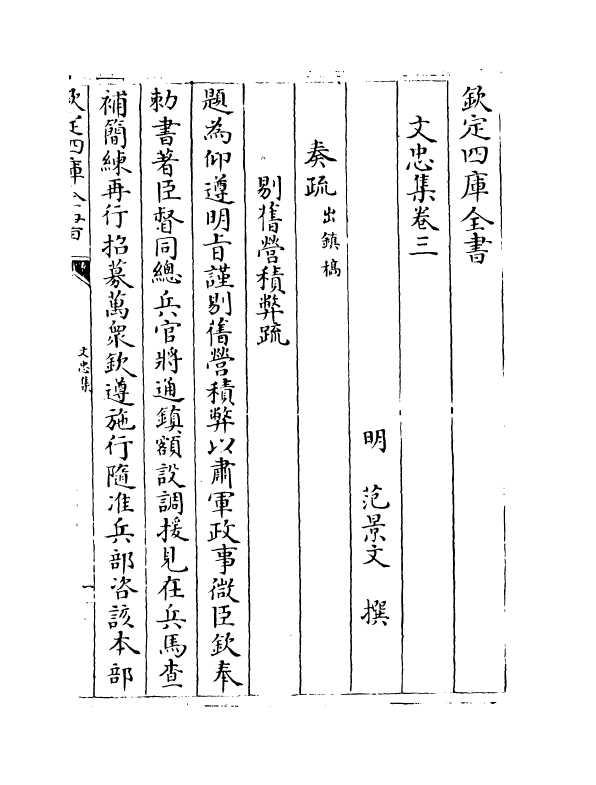 欽定四庫全書
文忠集卷三
明 范景文 撰
奏疏 出鎮稿
剔舊營積弊疏
題為仰遵明旨謹剔舊營積弊以肅軍政事微臣欽奉
勅書著臣督同總兵官將通鎮額設調援見在兵馬查
補簡練再行招募萬衆欽遵施行隨准兵部咨該本部
欽定四庫全書
文忠集
一